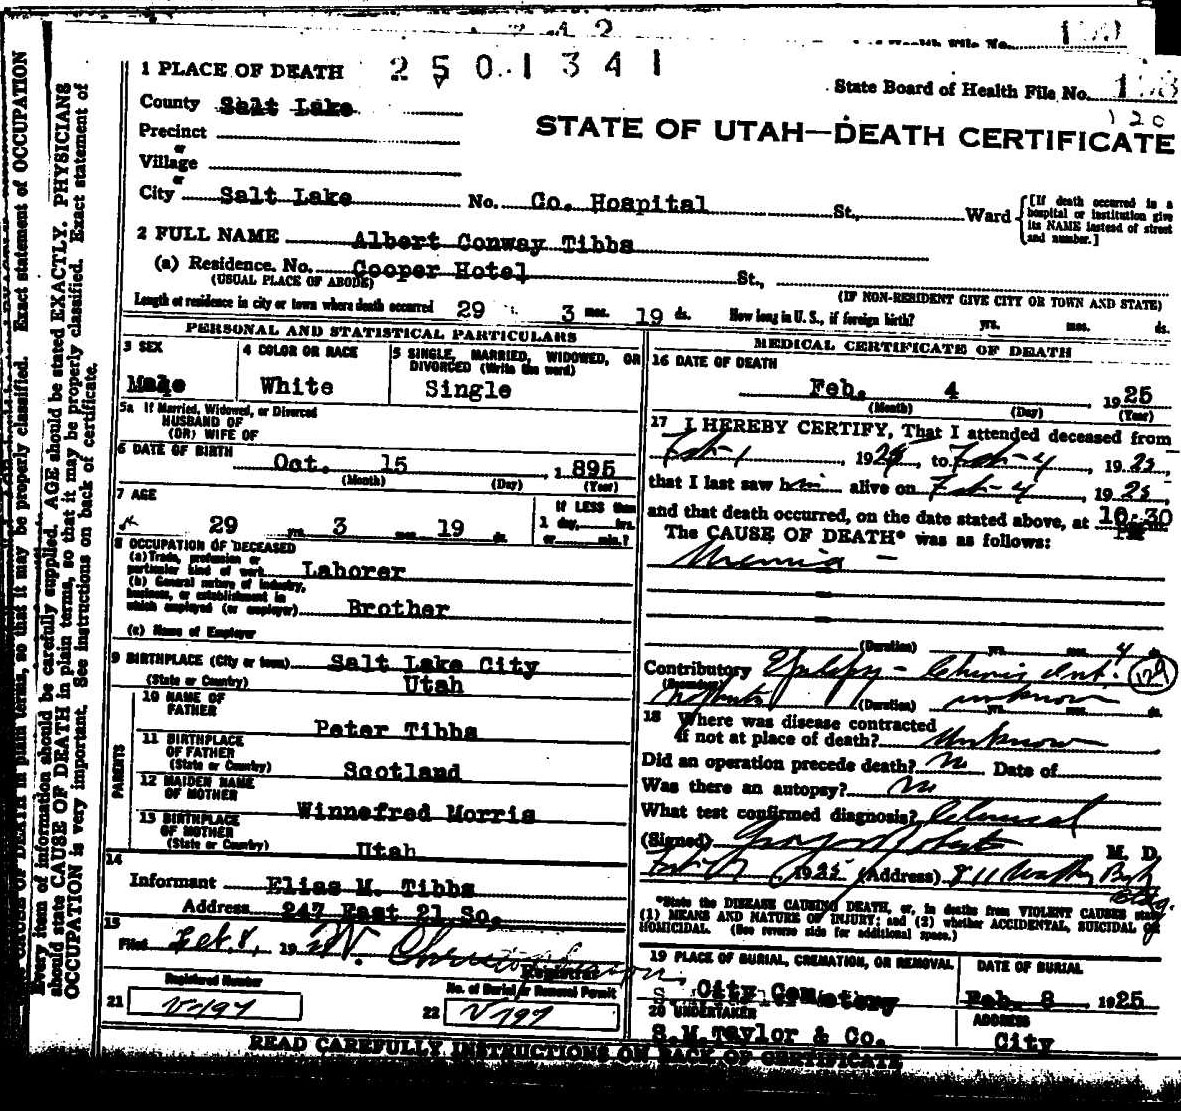 2501341
1 PLACE OF DEATH
State Board of Health File No.
County Salt Lake
120
STATE OF UTAH—DEATH CERTIFICATE
Precinct
or
Village
or
City Salt Lake No. Co. Hospital St., Ward
[If death occurred in a hospital or institution give its NAME instead of street and number.]
2 FULL NAME Albert Conway Tibbs
(a) Residence. No. Cooper Hotel St.,
(USUAL PLACE OF ABODE) (IF NON-RESIDENT GIVE CITY OR TOWN AND STATE)
Length of residence in city or town where death occurred 29 3 mos. 19 ds. How long in U. S., if foreign birth? yrs. mos. ds.
PERSONAL AND STATISTICAL PARTICULARS
3 SEX
Male
4 COLOR OR RACE
White
5 SINGLE, MARRIED, WIDOWED, OR
DIVORCED (Write the word)
Single
5a If Married, Widowed, or Divorced
HUSBAND OF
(OR) WIFE OF
6 DATE OF BIRTH
Oct. 15 , 1895
(Month) (Day) (Year)
7 AGE
29 yrs. 3 mos. 19 ds.
If LESS than
1 day, hrs.
or min.?
8 OCCUPATION OF DECEASED
(a) Trade, profession or
particular kind of work Laborer
(b) General nature of industry,
business, or establishment in
which employed (or employer) Brother
(c) Name of Employer
9 BIRTHPLACE (City or town) Salt Lake City
(State or Country) Utah
PARENTS
10 NAME OF
FATHER
Peter Tibbs
11 BIRTHPLACE
OF FATHER
(State or Country) Scotland
12 MAIDEN NAME
OF MOTHER
Winnefred Morris
13 BIRTHPLACE
OF MOTHER
(State or Country) Utah
14
Informant Elias M. Tibbs
Address 247 East 21 So,
15
Filed Feb. 8, 19
Registrar
Registered Number
No. of Burial or Removal Permit
21 V-197
22 V 197
MEDICAL CERTIFICATE OF DEATH
16 DATE OF DEATH
Feb. 4 1925
(Month) (Day) (Year)
17 I HEREBY CERTIFY, That I attended deceased from
Feb-1, 1925, to Feb-4, 1925,
that I last saw him alive on Feb-4, 1925,
and that death occurred, on the date stated above, at 10:30
The CAUSE OF DEATH* was as follows:
Uremia —
(Duration) yrs. mos. 4 ds.
Contributory Epilepsy — Chronic Int.
(Secondary) Nephritis (Duration) unknown yrs. mos. ds.
18 Where was disease contracted
if not at place of death? Unknown
Did an operation precede death? No Date of
Was there an autopsy? No
What test confirmed diagnosis? Clinical
(Signed) M. D.
1925 (Address) 811
*State the DISEASE CAUSING DEATH, or, in deaths from VIOLENT CAUSES state
(1) MEANS AND NATURE OF INJURY; and (2) whether ACCIDENTAL, SUICIDAL OR
HOMICIDAL. (See reverse side for additional space.)
19 PLACE OF BURIAL, CREMATION, OR REMOVAL
City Cemetery
DATE OF BURIAL
Feb. 8, 1925
20 UNDERTAKER
S.M. Taylor & Co.
ADDRESS
City
READ CAREFULLY INSTRUCTIONS ON BACK OF CERTIFICATE
Every item of information should be carefully supplied. AGE should be stated EXACTLY. PHYSICIANS
should state CAUSE OF DEATH in plain terms, so that it may be properly classified. Exact statement of
OCCUPATION is very important. See instructions on back of certificate.